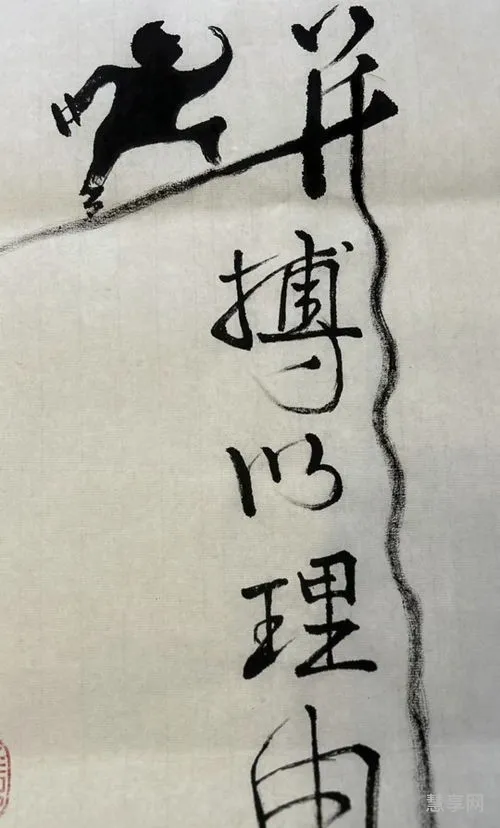 拼搏以理由
慧享网